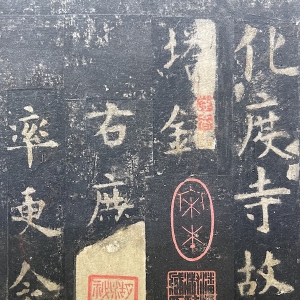 化度寺故
塔銘
右庶
率更令
宋本